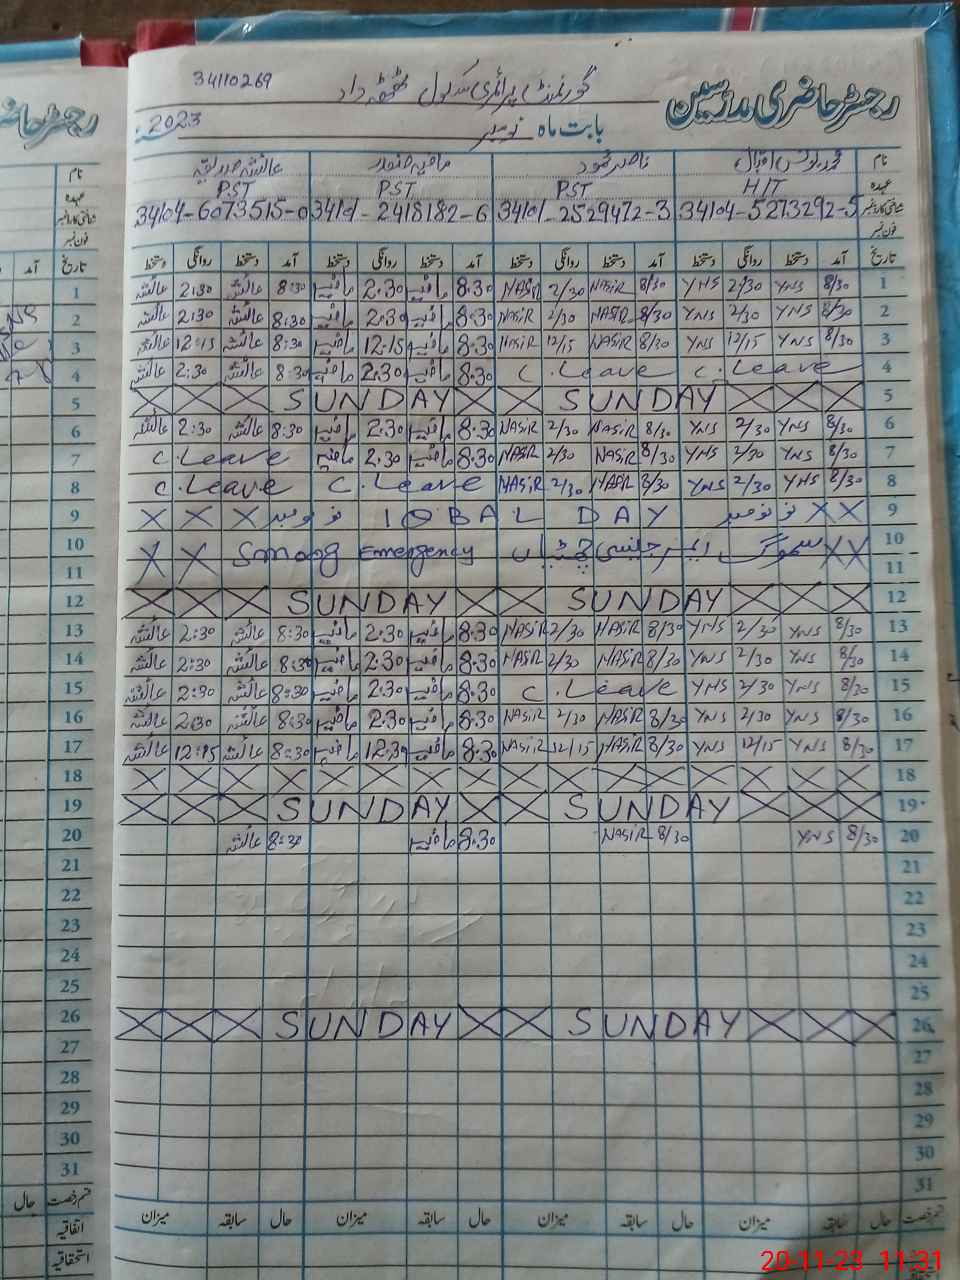 34110269 گورنمنٹ پرائمری سکول ٹھٹھہ داد
رجسٹر حاضری مدرسین
بابت ماہ نومبر 2023
نام ناصر محمود عائشہ صدیقہ
عہدہ HIT PST PST PST
شناختی کارڈ نمبر 34104-5273292-5 34101-2529472-3 34101-2418182-6 34104-6073515-0
فون نمبر
تاریخ آمد دستخط روانگی دستخط آمد دستخط روانگی دستخط آمد دستخط روانگی دستخط آمد دستخط روانگی دستخط
1 8/30 YNS 2/30 YNS 8/30 NASIR 2/30 NASIR 8:30 مافیہ 2:30 مافیہ 8:30 عائشہ 2:30 عائشہ
2 8/30 YNS 2/30 YNS 8/30 NASIR 2/30 NASIR 8:30 مافیہ 2:30 مافیہ 8:30 عائشہ 2:30 عائشہ
3 8/30 YNS 12/15 YNS 8/30 NASIR 12/15 NASIR 8:30 مافیہ 12:15 مافیہ 8:30 عائشہ 12:15 عائشہ
4 C.Leave C.Leave 8:30 مافیہ 2:30 مافیہ 8:30 عائشہ 2:30 عائشہ
5 SUNDAY SUNDAY
6 8/30 YNS 2/30 YNS 8/30 NASIR 2/30 NASIR 8:30 مافیہ 2:30 مافیہ 8:30 عائشہ 2:30 عائشہ
7 8/30 YNS 2/30 YNS 8/30 NASIR 2/30 NASIR 8:30 مافیہ 2:30 مافیہ C.Leave
8 8/30 YNS 2/30 YNS 8/30 NASIR 2/30 NASIR C.Leave C.Leave
9 نو نومبر IQBAL DAY نو نومبر
10 سموگ ایمرجنسی چھٹیاں Smoog Emergency
11
12 SUNDAY SUNDAY
13 8/30 YNS 2/30 YNS 8/30 NASIR 2/30 NASIR 8:30 مافیہ 2:30 مافیہ 8:30 عائشہ 2:30 عائشہ
14 8/30 YNS 2/30 YNS 8/30 NASIR 2/30 NASIR 8:30 مافیہ 2:30 مافیہ 8:30 عائشہ 2:30 عائشہ
15 8/30 YNS 2/30 YNS C.Leave 8:30 مافیہ 2:30 مافیہ 8:30 عائشہ 2:30 عائشہ
16 8/30 YNS 2/30 YNS 8/30 NASIR 2/30 NASIR 8:30 مافیہ 2:30 مافیہ 8:30 عائشہ 2:30 عائشہ
17 8/30 YNS 12/15 YNS 8/30 NASIR 12/15 NASIR 8:30 مافیہ 12:30 مافیہ 8:30 عائشہ 12:15 عائشہ
18
19 SUNDAY SUNDAY
20 8/30 YNS 8/30 NASIR 8:30 مافیہ 8:30 عائشہ
21
22
23
24
25
26 SUNDAY SUNDAY
27
28
29
30
31
قسم رخصت حال سابقہ میزان حال سابقہ میزان حال سابقہ میزان حال سابقہ میزان
رجسٹر حا
نام
عہدہ
شناختی کارڈ نمبر
فون نمبر
تاریخ آمد
1
2
3
4
5
6
7
8
9
10
11
12
13
14
15
16
17
18
19
20
21
22
23
24
25
26
27
28
29
30
31
قسم رخصت حال
اتفاقیہ
استحقاقیہ
20-11-23 11:31